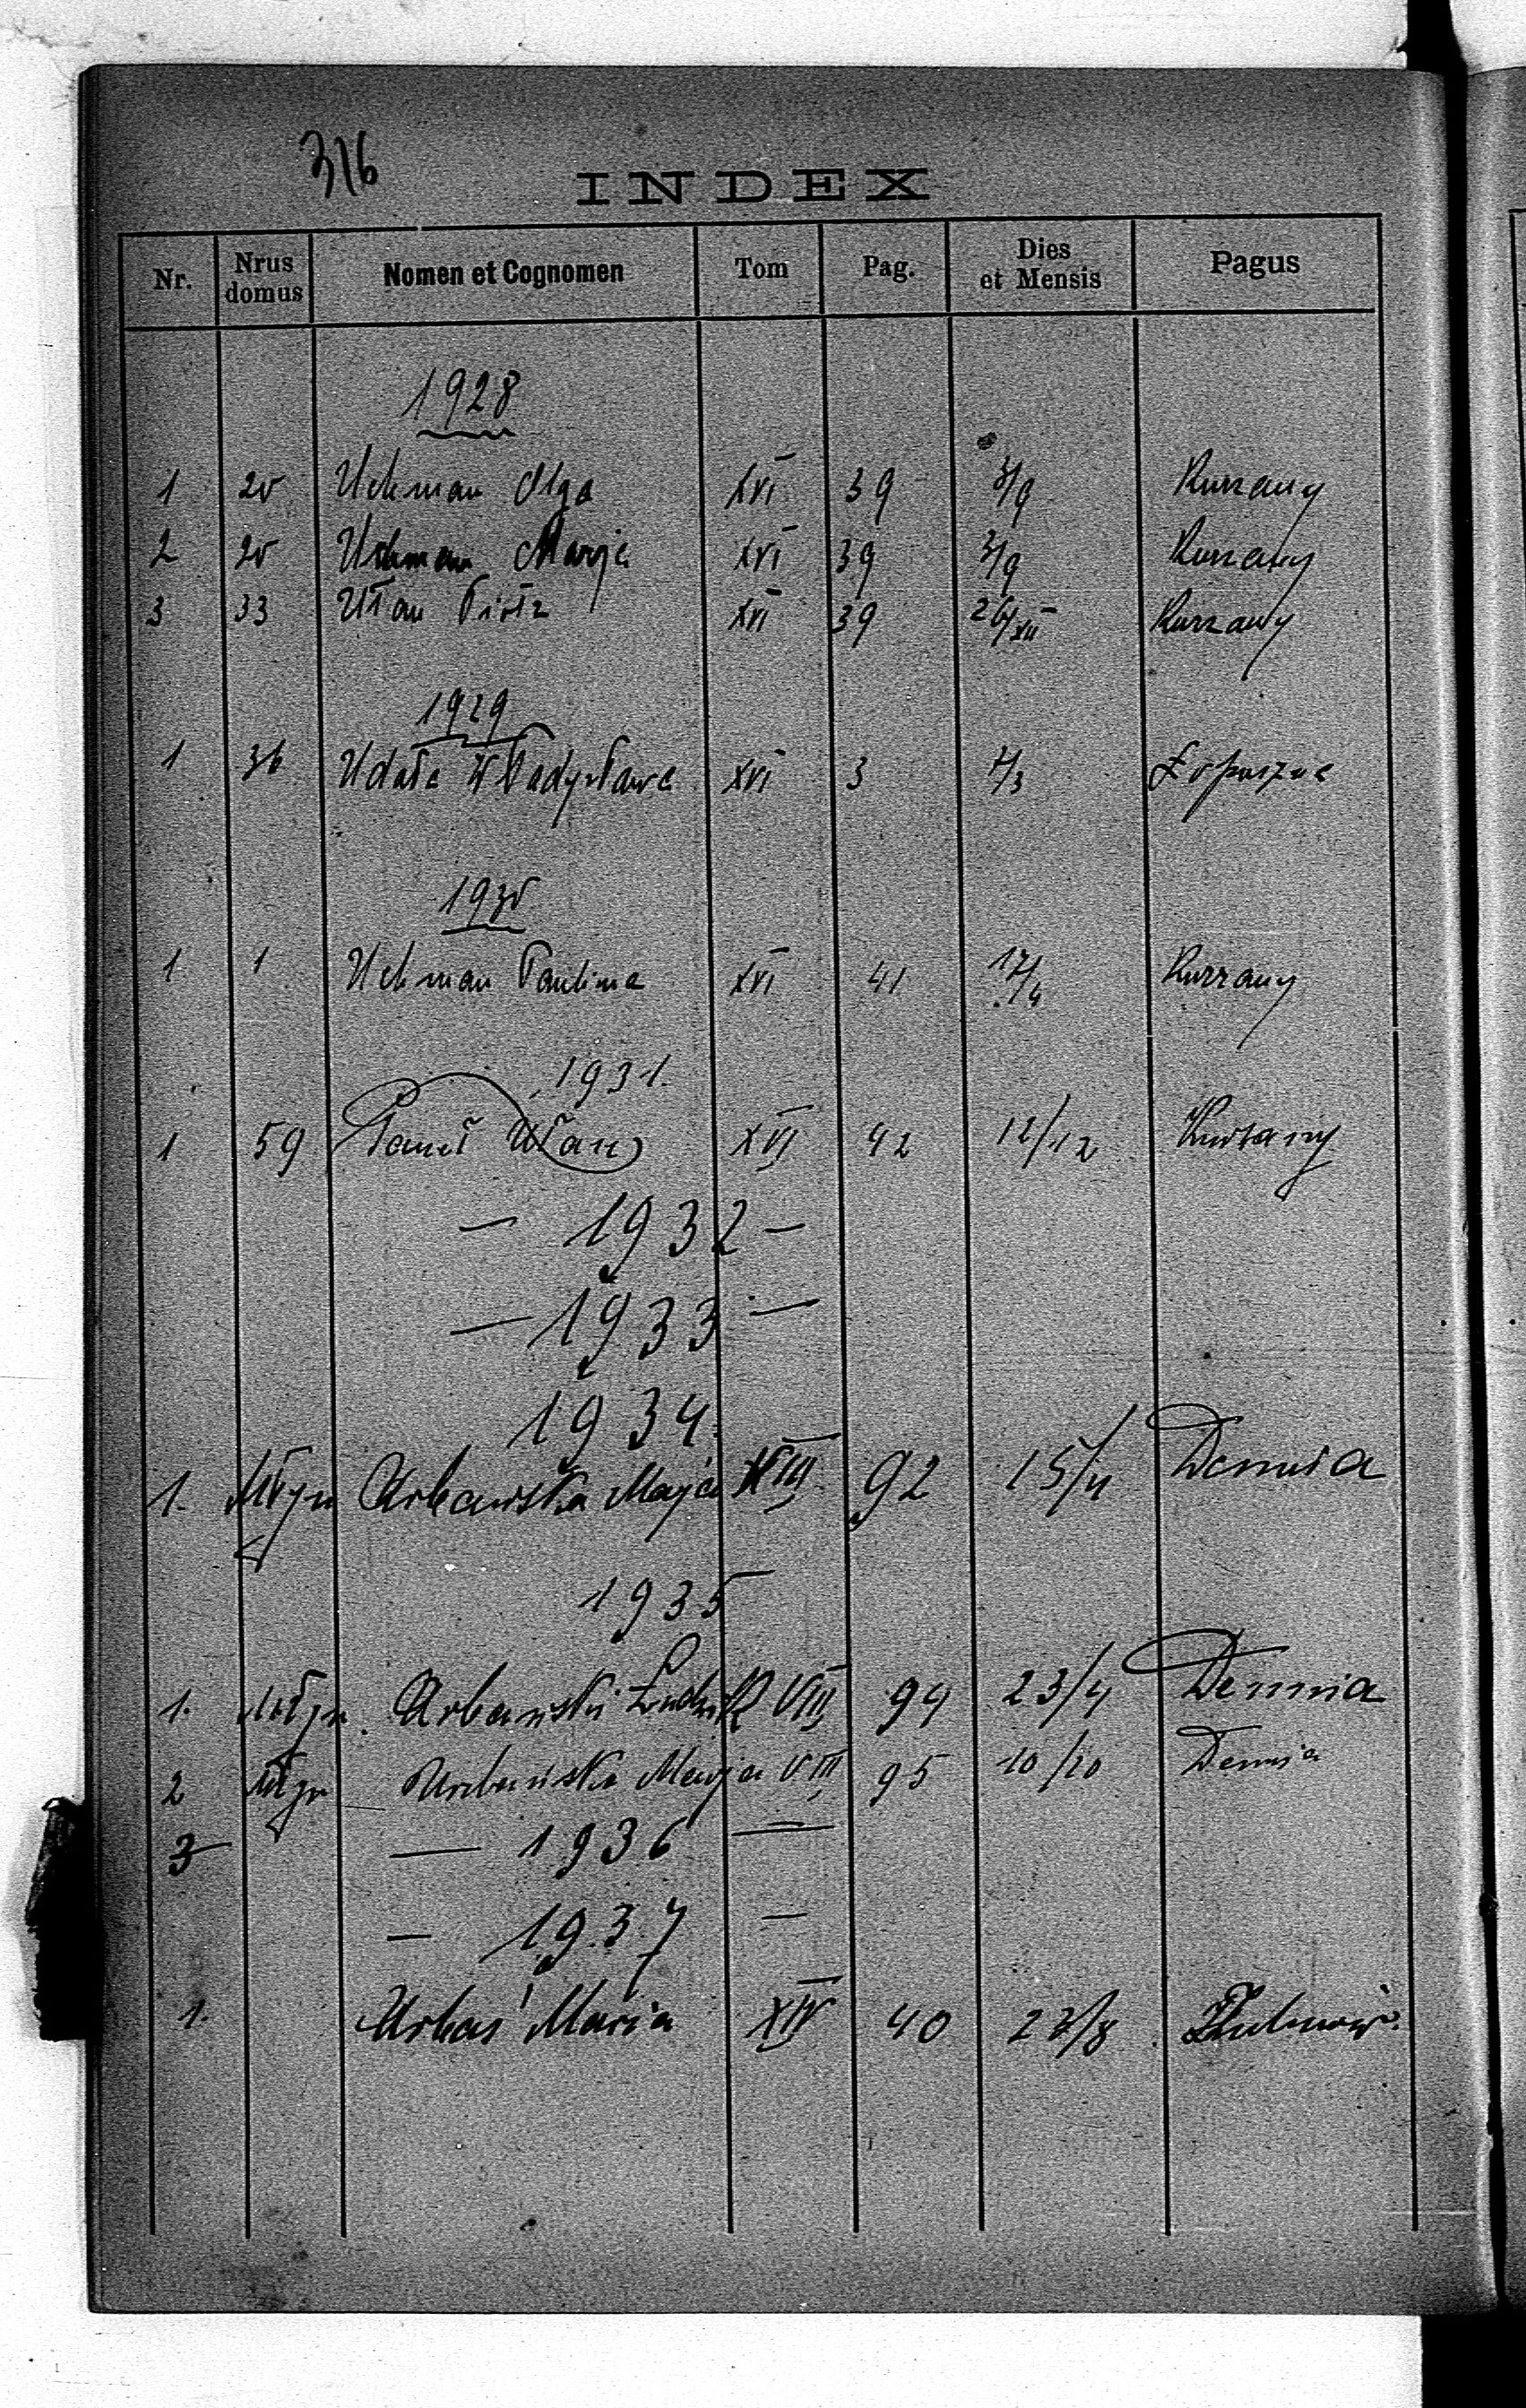 316
INDEX
Nr. Nrus domus Nomen et Cognomen Tom Pag. Dies et Mensis Pagus
1928
1 20 Uchman Olga XVI 39 3/9 Kurzany
2 20 Uchman Marja XVI 39 3/9 Kurzany
3 33 Ułan Piotr XVI 39 26/XII Kurzany
1929
1 36 Udała Władysława XVI 3 Łopuszna
1930
1 1 Uchman Paulina XVI 41 17/4 Kurzany
1931.
1 59 Ułan XVI 42 12/12 Kurzany
— 1932 —
— 1933 —
1934.
1. Młyn Urbańska Maja VIII 92 15/4 Demnia
1935
1. Młyn Urbański Ludwik VIII 94 23/4 Demnia
2 Młyn Urbańska Marja VIII 95 10/10 Demnia
3 — 1936 —
— 1937 —
1. Urbaś Maria XIV 40 23/8